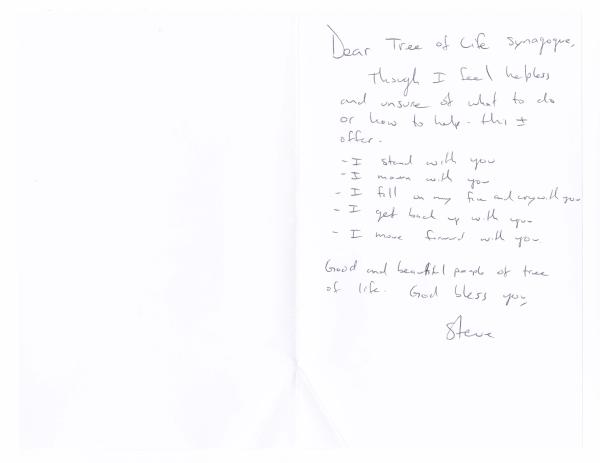 Dear Tree of Life Synagogue,
Though I feel helpless
and unsure of what to do
or how to help - this I
offer.
- I stand with you
- I mourn with you
- I fall on my face and cry with you
- I get back up with you
- I move forward with you
Good and beautiful people of tree
of life. God bless you,
Steve